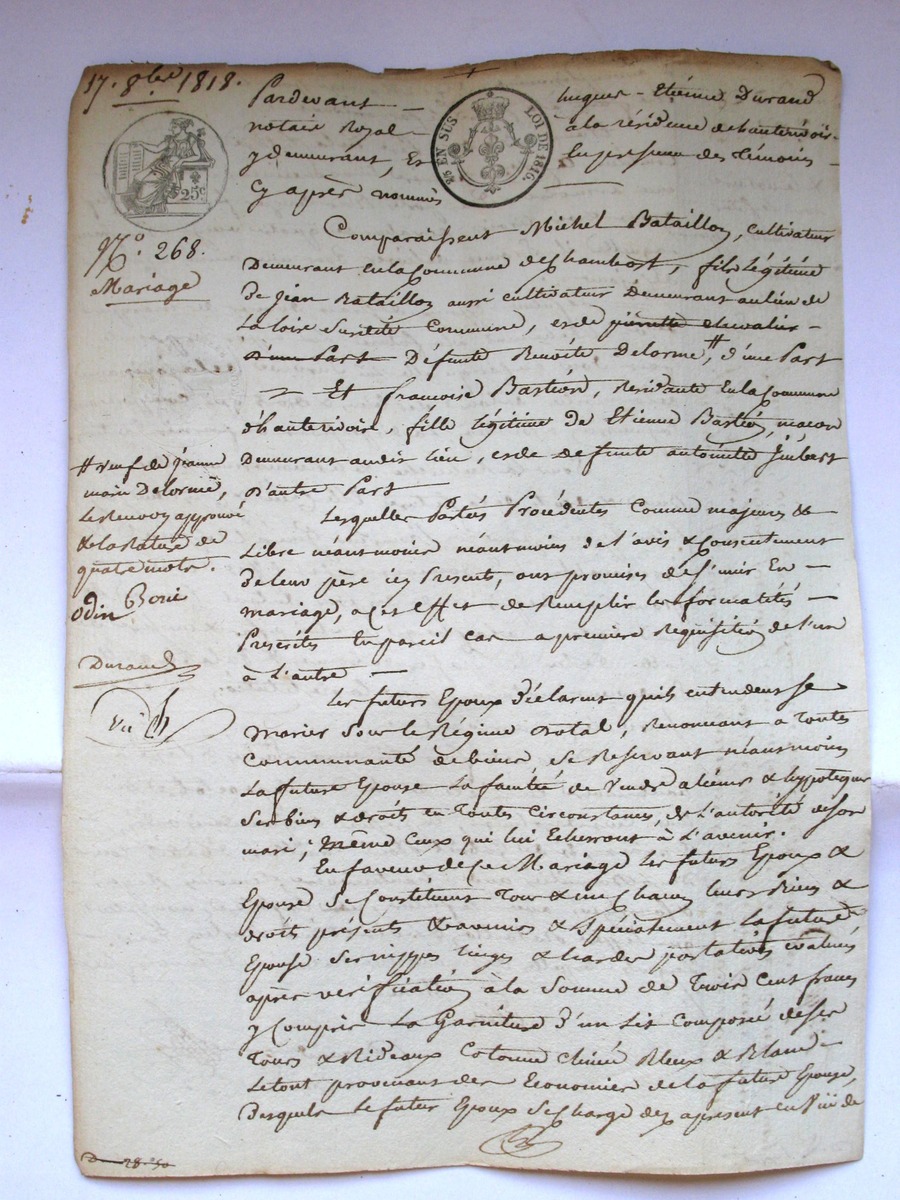 17. 8bre 1818.
25c
No. 268.
Mariage
25 EN SUS LOI DE 1816.
Pardevant — hugues - Etiénne Durand
notaire Royal — à la résidence dehauterivoir.
y demeurant, Et En presence des Témoins —
Cy après nommés
Comparaissent Michel Bataillon, Cultivateur
Demeurant enlacommune dechambost, fils légitime
de Jean Bataillon aussi cultivateur Demeurant aulieu de
La loire Susdite Commune, et de pierrette chevalier —
d'une Part Défunte Benoite Delorme, # d'une Part
Et françoise Bastion, Residante Enlacommune
d'hauterivoir, fille légitime de Etienne Bastion, macon
Demeurant audit lieu, et de defunte antoinette Jmbert
D'autre Part
# veuf de Jeanne
marie Delorme,
le Renvoy approuvé
& la Rature de
quatre mots.
Odin Borie
Durand
Vu
Lesquelles Partiés Procédentes Comme majeures &
Libre néantmoins néantmoins de l'avis & Consentement
de leur père icy Presents, ont promises de S'unir En —
mariage, a cet effet de Remplir les formalités —
Prescrites En pareil cas a première Requisition de l'un
à L'autre —
Les futurs Epoux Déclarent quils entendent Se
marier Sous le Régime Dotal, Renoncant à Toutes
Communauté debiens, Se Reservant néantmoins
La future Epouse La faculté de Vendre aliéner & hypotequer
Ses biens & droits en Toutes Circonstances, de L'autorité de son
mari; même Ceux qui lui Echerront à L'avenir.
En faveur de Ce Mariage les futurs Epoux &
Epouse Se Constituent Tous & un Chacun leurs Biens &
droits présents & avenirs & Spécialement La future
Epouse Ses nippes linges & hardes portatives évalués
après vérification à la Somme de Trois Cent francs
y Compris La Garniture d'un Lit Composée de ses
Tours & Rideaux Cotonne Chinée Bleux & Blanc —
Le tout provenant des Economies de la future Epouse,
Desquels Le futur Epoux Se Charge dez apresent en